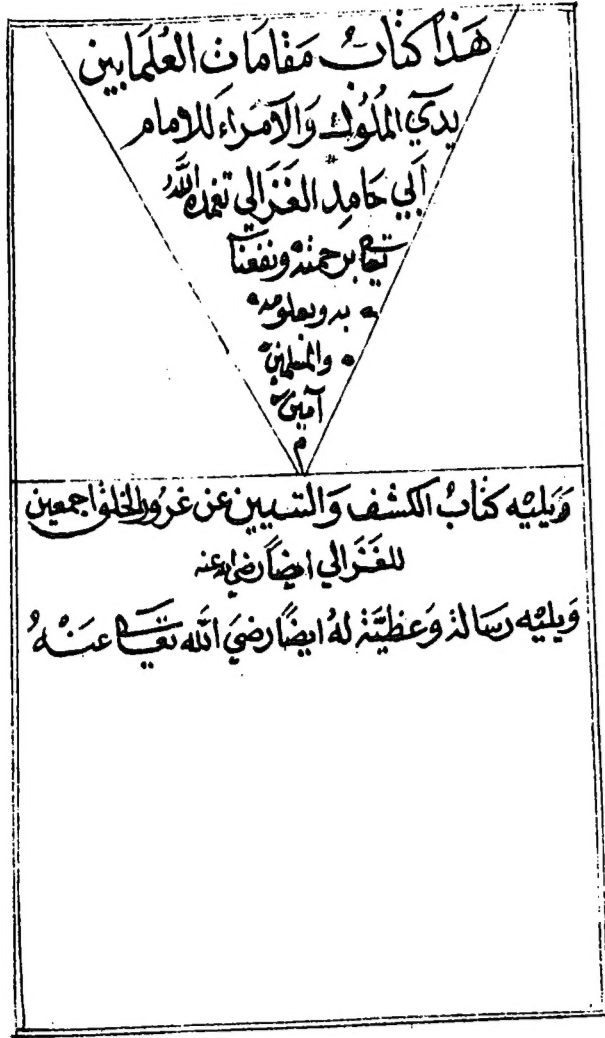 هَذَا كتابُ مَقامَات العُلمَا بين
يدَي المُلُوك وَالأمَرَاءَ للامام
أبي حَامِد الغَزَالي تغمده اللَّه
تعا برحمته ونفعنا
به وبعلومه
والمسلمين
آمين
م
وَيليْه كتابُ الكشف وَالتبيين عَن غرُور الخلق اجمعين
للغَزَالي ايضاً رضي الله عنه
وَيليْه رسَالة وَعظيَّة لهُ ايضًا رضيَ اللَّه تعا عنْهُ